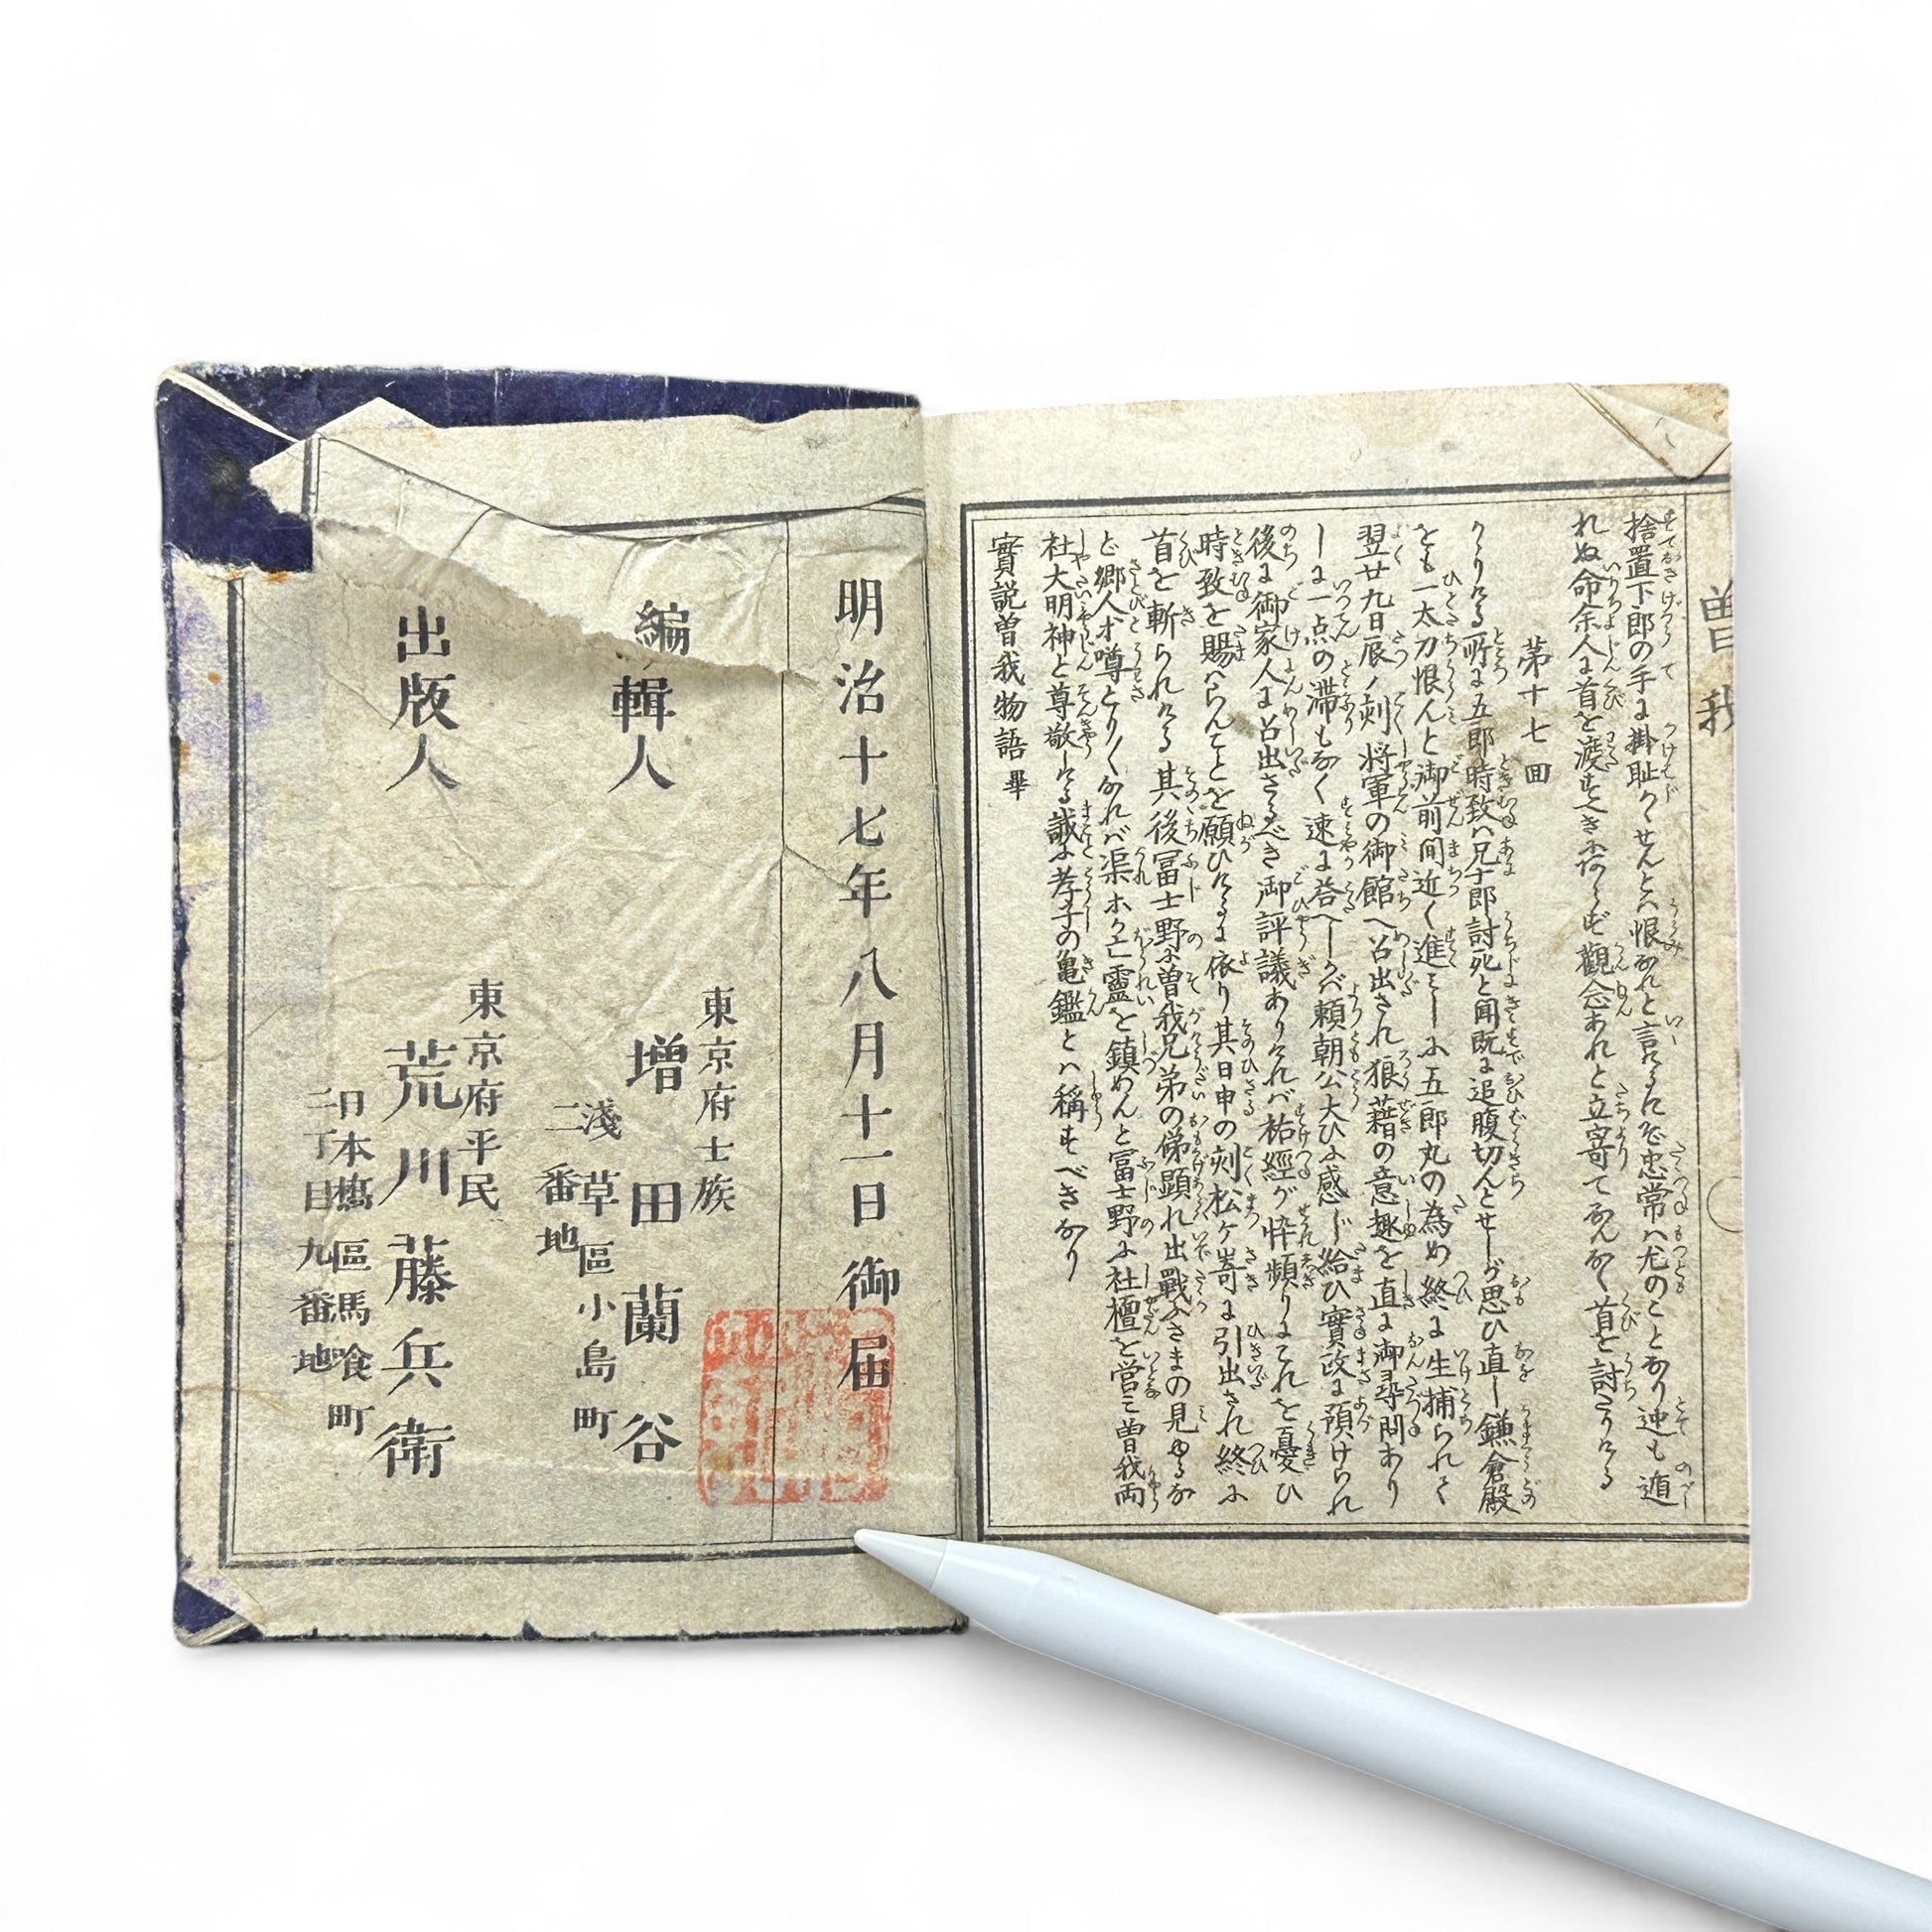 曽我
捨置下郎の手に掛耻かせんとハ恨なれと言けれバ忠常ハ尤のことなり迚も遁
れぬ命余人に首を渡すべき觀念あれと立寄てなんなく首を討たりける
第十七回
かゝりける所に五郎時致ハ兄十郎討死と聞既に追腹切んとせしが思ひ直し鎌倉殿
をも一太刀恨んと御前間近く進みしに五郎丸の為め終に生捕られて
翌廿九日辰ノ刻将軍の御館へ召出され狼藉の意趣を直に御尋問あり
しに一点の滞もなく速に答へしかバ頼朝公大ひに感じ給ひ實政に預けられ
後に御家人に召出さるべき御評議ありけれバ祐經が悴頻りにこれを憂ひ
時致を賜ハらんことを願ひけるに依り其日申の刻松ヶ嵜に引出され終に
首を斬られける其後冨士野に曽我兄弟の俤顕れ出戰ふさまの見ゆるな
ど郷人才噂とり〳〵なれバ渠ホが亡靈を鎮めんと冨士野に社檀を営こ曽我両
社大明神と尊敬しける誠に孝子の亀鑑とハ稱すべきなり
實説曽我物語 畢
明治十七年八月十一日御届
東京府士族
編輯人 増田蘭谷
淺草區小島町
二番地
東京府平民
出版人 荒川藤兵衛
日本橋區馬喰町
二丁目九番地